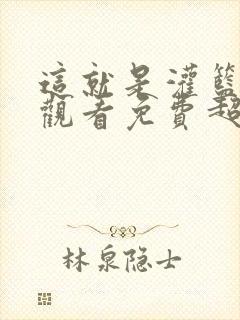 這就是灌籃
觀看免費超
林泉隐士